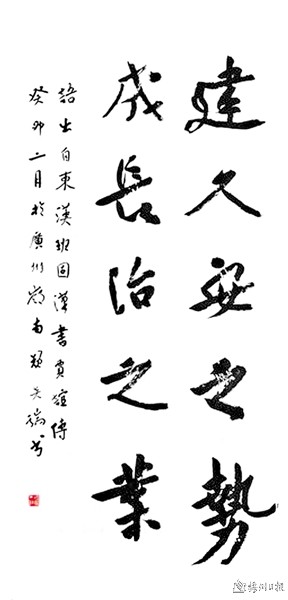 建久安之勢
成長治之業
語出自東漢班固漢書賈誼傳
癸卯二月於廣州嶺南書
梅州日报